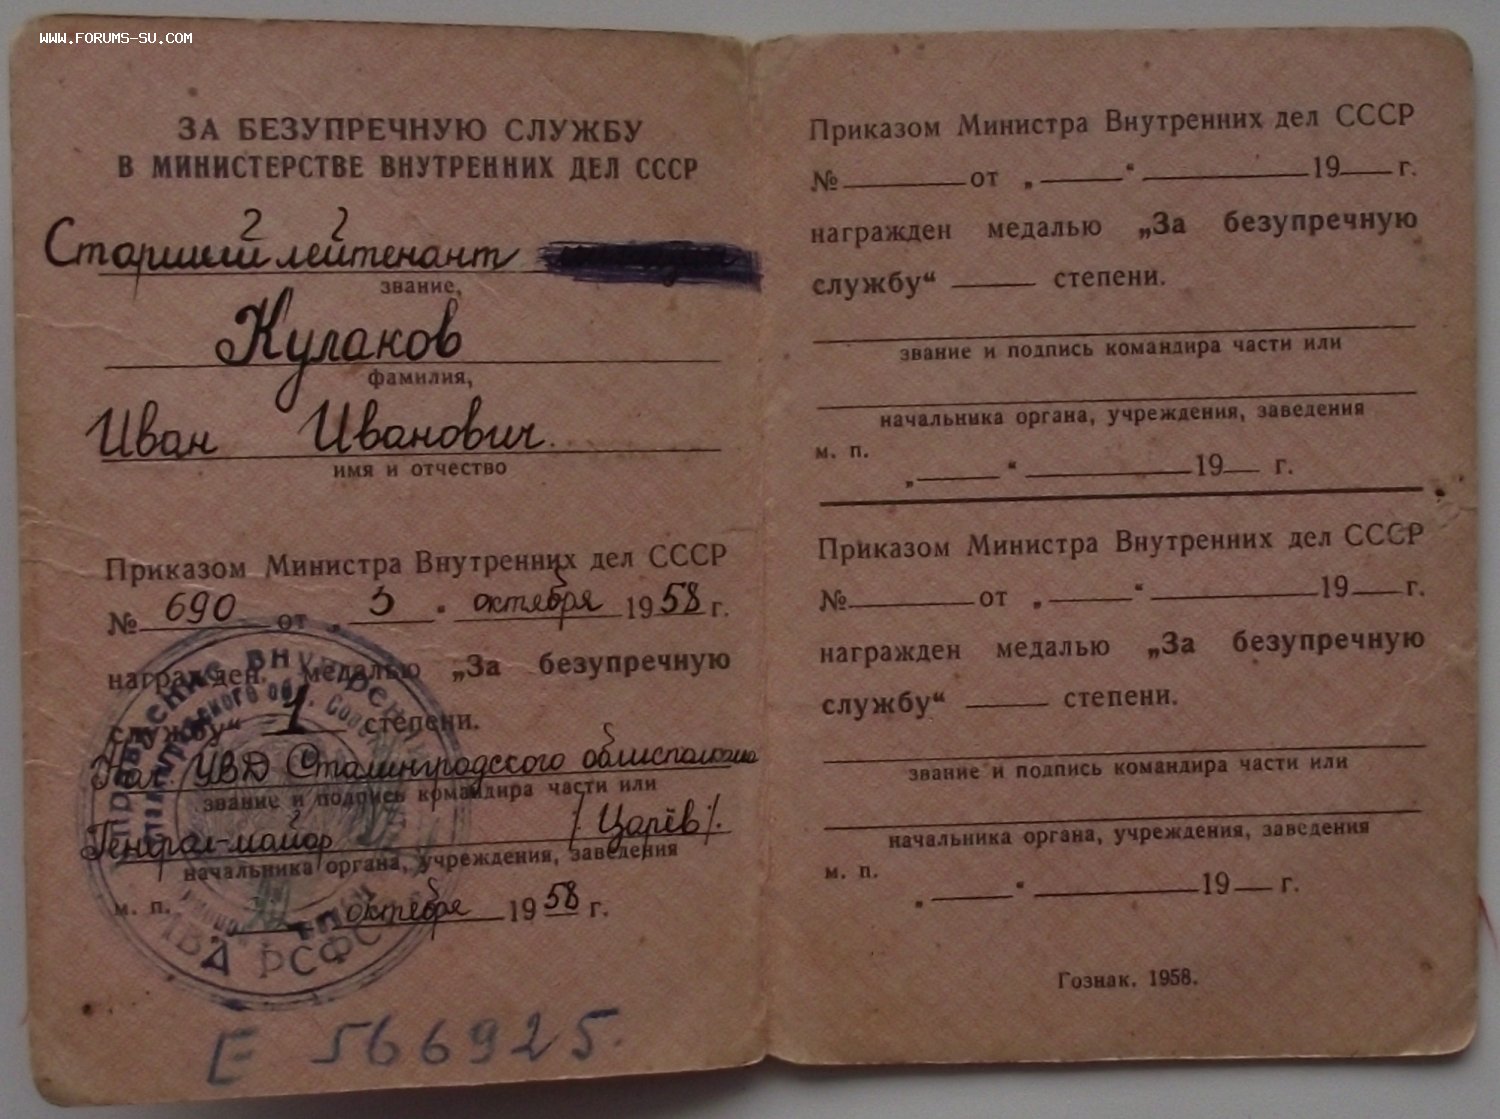 WWW.FORUMS-SU.COM
ЗА БЕЗУПРЕЧНУЮ СЛУЖБУ
В МИНИСТЕРСТВЕ ВНУТРЕННИХ ДЕЛ СССР
Старший лейтенант
звание,
Кулаков
фамилия,
Иван Иванович.
имя и отчество
Приказом Министра Внутренних дел СССР
№ 690 от „ 3 “ октября 1958 г.
награжден медалью „За безупречную
службу“ 1 степени.
Нач. УВД Сталинградского облисполкома
звание и подпись командира части или
Генерал-майор /Царёв/.
начальника органа, учреждения, заведения
м. п. октября 1958 г.
МВД РСФСР
Е 566925.
Приказом Министра Внутренних дел СССР
№ от „ “ 19 г.
награжден медалью „За безупречную
службу“ степени.
звание и подпись командира части или
начальника органа, учреждения, заведения
м. п.
„ “ 19 г.
Приказом Министра Внутренних дел СССР
№ от „ “ 19 г.
награжден медалью „За безупречную
службу“ степени.
звание и подпись командира части или
начальника органа, учреждения, заведения
м. п.
„ “ 19 г.
Гознак. 1958.